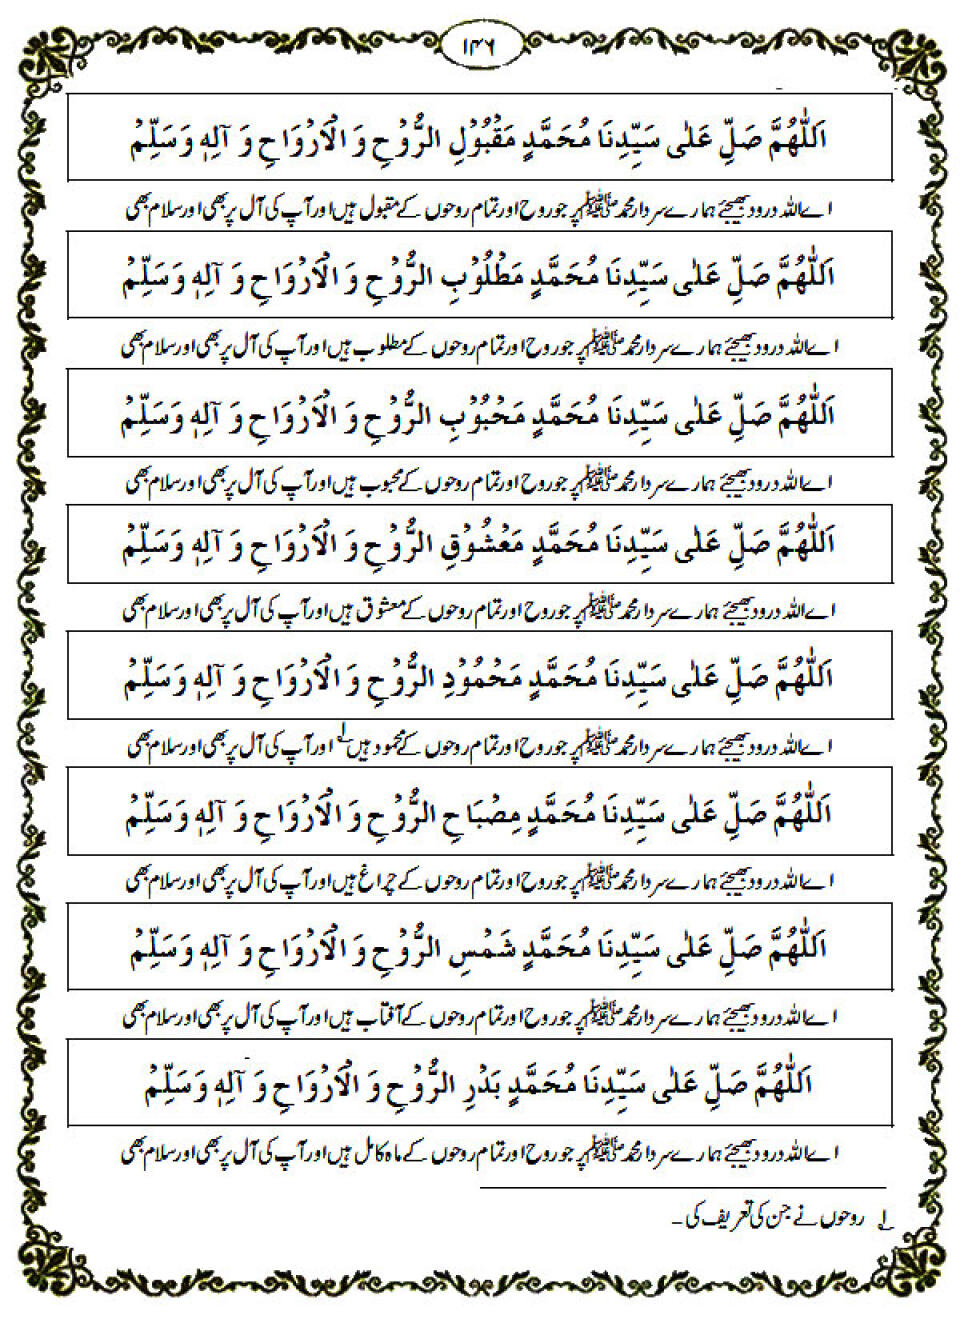 ۱۴۶
اَللّٰهُمَّ صَلِّ عَلٰى سَيِّدِنَا مُحَمَّدٍ مَقْبُوْلِ الرُّوْحِ وَ الْاَرْوَاحِ وَ آلِهٖ وَسَلِّمْ
اے اللہ درود بھیجئے ہمارے سردار محمد ﷺ پر جو روح اور تمام روحوں کے مقبول ہیں اور آپ کی آل پر بھی اور سلام بھی
اَللّٰهُمَّ صَلِّ عَلٰى سَيِّدِنَا مُحَمَّدٍ مَطْلُوْبِ الرُّوْحِ وَ الْاَرْوَاحِ وَ آلِهٖ وَسَلِّمْ
اے اللہ درود بھیجئے ہمارے سردار محمد ﷺ پر جو روح اور تمام روحوں کے مطلوب ہیں اور آپ کی آل پر بھی اور سلام بھی
اَللّٰهُمَّ صَلِّ عَلٰى سَيِّدِنَا مُحَمَّدٍ مَحْبُوْبِ الرُّوْحِ وَ الْاَرْوَاحِ وَ آلِهٖ وَسَلِّمْ
اے اللہ درود بھیجئے ہمارے سردار محمد ﷺ پر جو روح اور تمام روحوں کے محبوب ہیں اور آپ کی آل پر بھی اور سلام بھی
اَللّٰهُمَّ صَلِّ عَلٰى سَيِّدِنَا مُحَمَّدٍ مَعْشُوْقِ الرُّوْحِ وَ الْاَرْوَاحِ وَ آلِهٖ وَسَلِّمْ
اے اللہ درود بھیجئے ہمارے سردار محمد ﷺ پر جو روح اور تمام روحوں کے معشوق ہیں اور آپ کی آل پر بھی اور سلام بھی
اَللّٰهُمَّ صَلِّ عَلٰى سَيِّدِنَا مُحَمَّدٍ مَحْمُوْدِ الرُّوْحِ وَ الْاَرْوَاحِ وَ آلِهٖ وَسَلِّمْ
اے اللہ درود بھیجئے ہمارے سردار محمد ﷺ پر جو روح اور تمام روحوں کے محمود ہیں ۱؎ اور آپ کی آل پر بھی اور سلام بھی
اَللّٰهُمَّ صَلِّ عَلٰى سَيِّدِنَا مُحَمَّدٍ مِصْبَاحِ الرُّوْحِ وَ الْاَرْوَاحِ وَ آلِهٖ وَسَلِّمْ
اے اللہ درود بھیجئے ہمارے سردار محمد ﷺ پر جو روح اور تمام روحوں کے چراغ ہیں اور آپ کی آل پر بھی اور سلام بھی
اَللّٰهُمَّ صَلِّ عَلٰى سَيِّدِنَا مُحَمَّدٍ شَمْسِ الرُّوْحِ وَ الْاَرْوَاحِ وَ آلِهٖ وَسَلِّمْ
اے اللہ درود بھیجئے ہمارے سردار محمد ﷺ پر جو روح اور تمام روحوں کے آفتاب ہیں اور آپ کی آل پر بھی اور سلام بھی
اَللّٰهُمَّ صَلِّ عَلٰى سَيِّدِنَا مُحَمَّدٍ بَدْرِ الرُّوْحِ وَ الْاَرْوَاحِ وَ آلِهٖ وَسَلِّمْ
اے اللہ درود بھیجئے ہمارے سردار محمد ﷺ پر جو روح اور تمام روحوں کے ماہ کامل ہیں اور آپ کی آل پر بھی اور سلام بھی
۱؎ روحوں نے جن کی تعریف کی۔